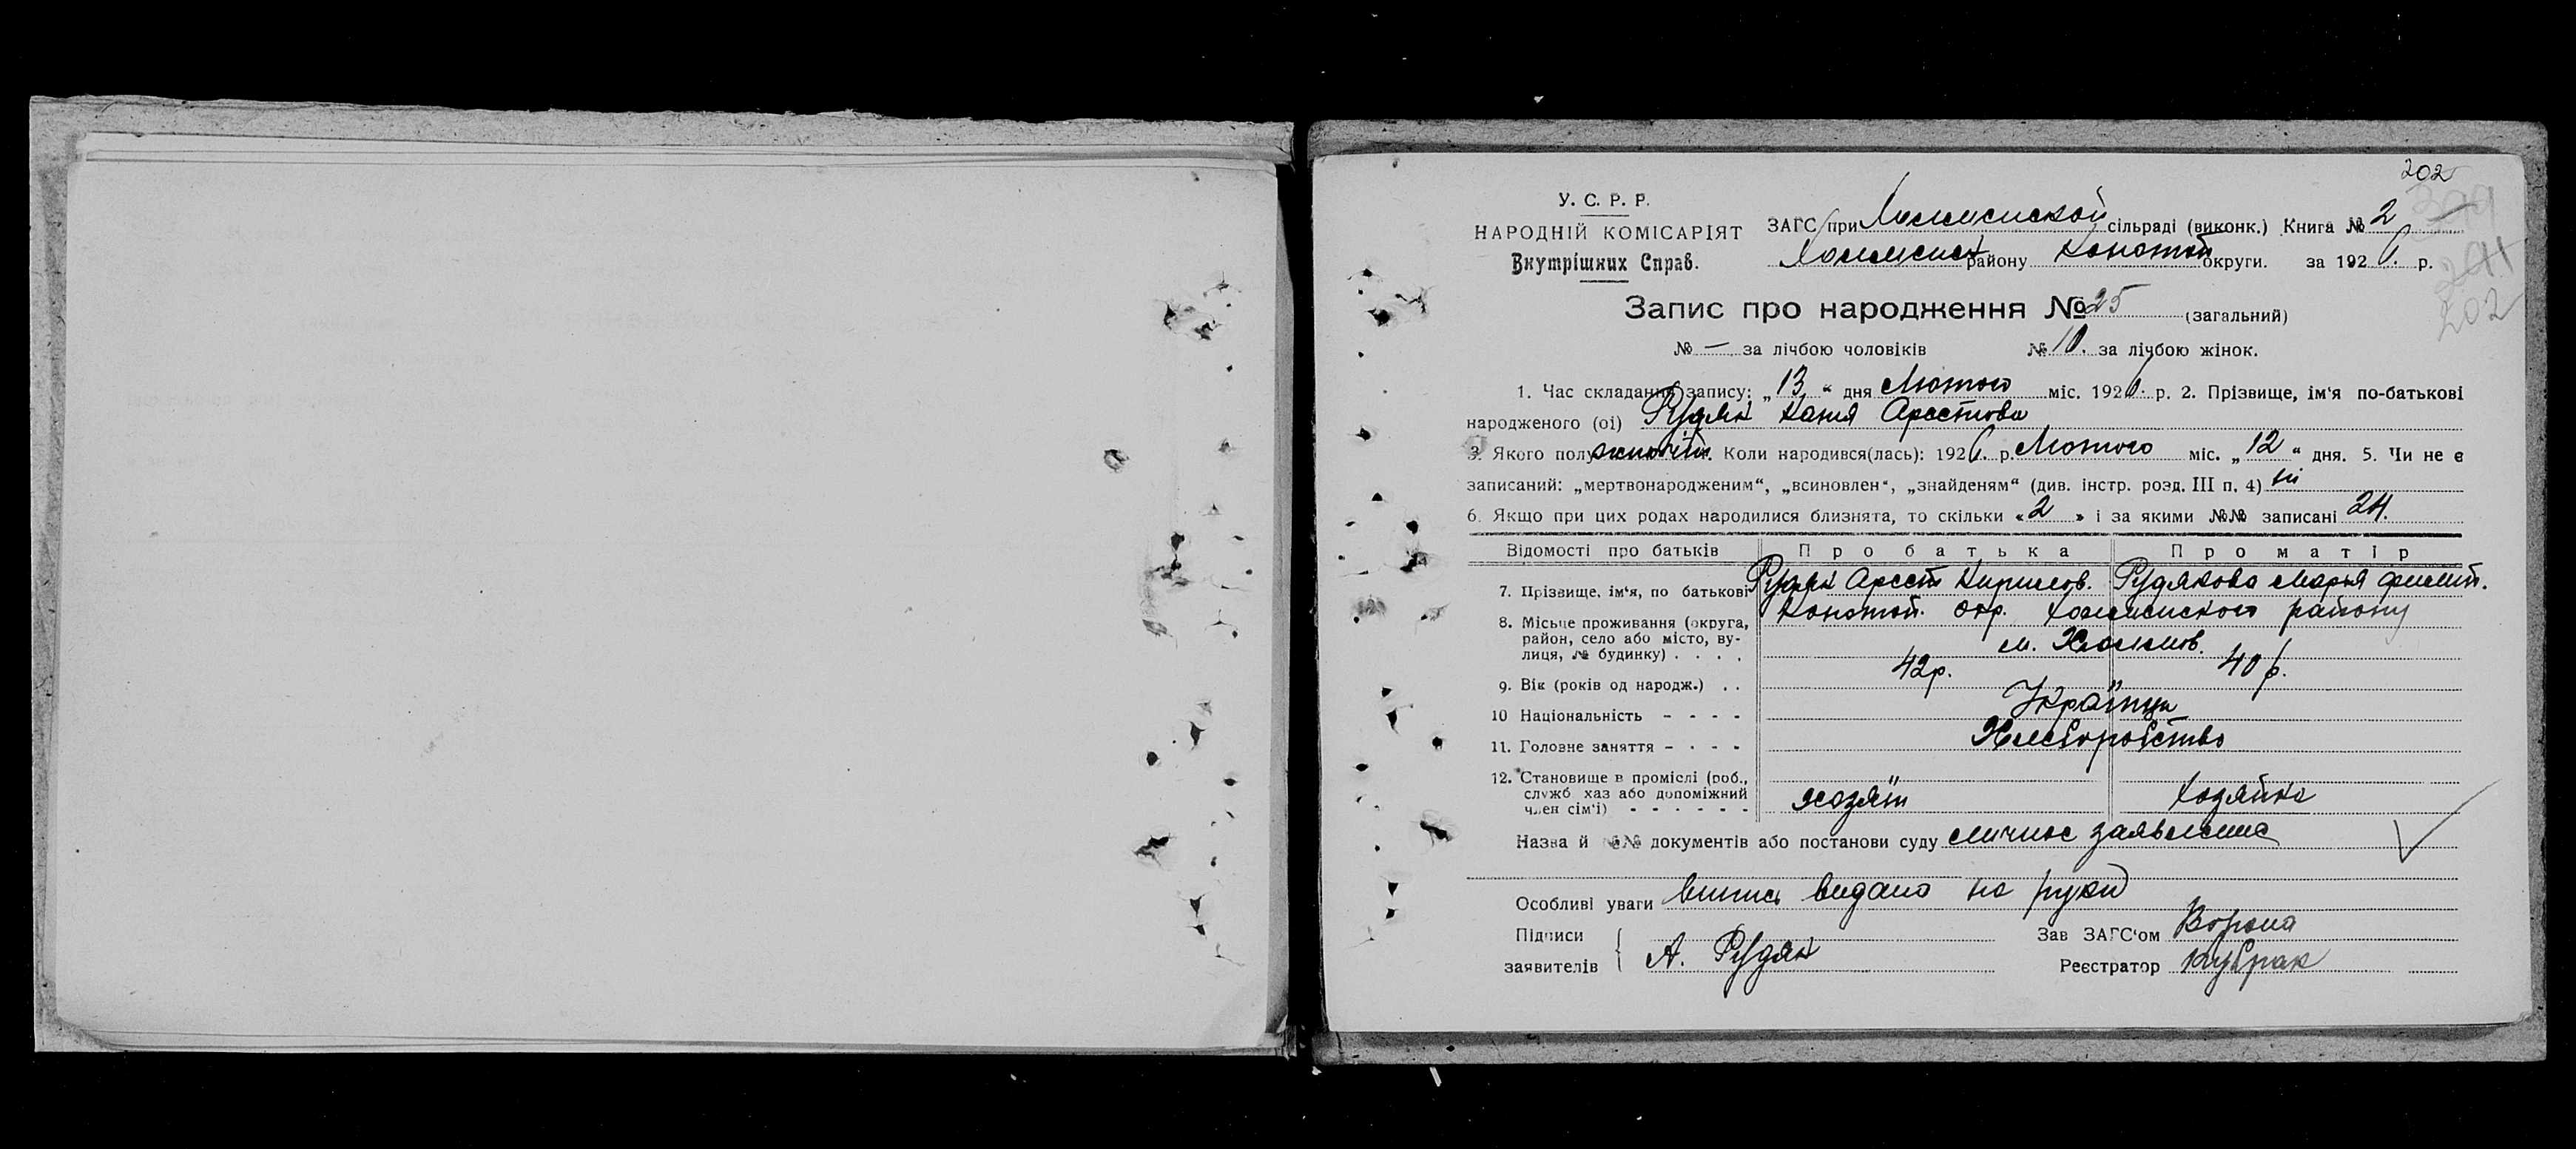 202
У. С. Р. Р.
НАРОДНІЙ КОМІСАРІЯТ
Внутрішних Справ.
ЗАГС при сільраді (виконк.) Книга № 2
району Конотоп округи. за 1926. р.
379
241
202
Запис про народження № 25 (загальний)
№ — за лічбою чоловіків № 10. за лічбою жінок.
1. Час складання запису: „13“ дня Лютого міс. 1926. р. 2. Прізвище, ім'я по-батькові
народженого (ої) Рудяк Катя Арестова
3. Якого полу жиночий. Коли народився(лась): 1926. р. Лютого міс. „12“ дня. 5. Чи не є
записаний: „мертвонародженим“, „всиновлен“, „знайденям“ (див. інстр. розд. III п. 4) ні
6. Якщо при цих родах народилися близнята, то скільки «2» і за якими №№ записані 24.
Відомості про батьків Про батька Про матір
7. Прізвище, ім'я, по батькові Рудяк Арест Кирилов. Рудякова Марья Филип.
8. Місьце проживання (округа, район, село або місто, вулиця, № будинку) . . . . Конотоп. окр. району
м.
9. Вік (років од народж.) . . 42р. 40 р.
10 Національність - - - - Українци
11. Головне заняття - - - - Хлеборобство
12. Становище в промислі (роб., служб хаз або допоміжний член сім'ї) - - - - - - хозяїн хозяйка
Назва й №№ документів або постанови суду личное заявление
Особливі уваги випись видано на руки
Підписи
заявителів А. Рудяк
Зав ЗАГС'ом Ворона
Реєстратор Кубрак